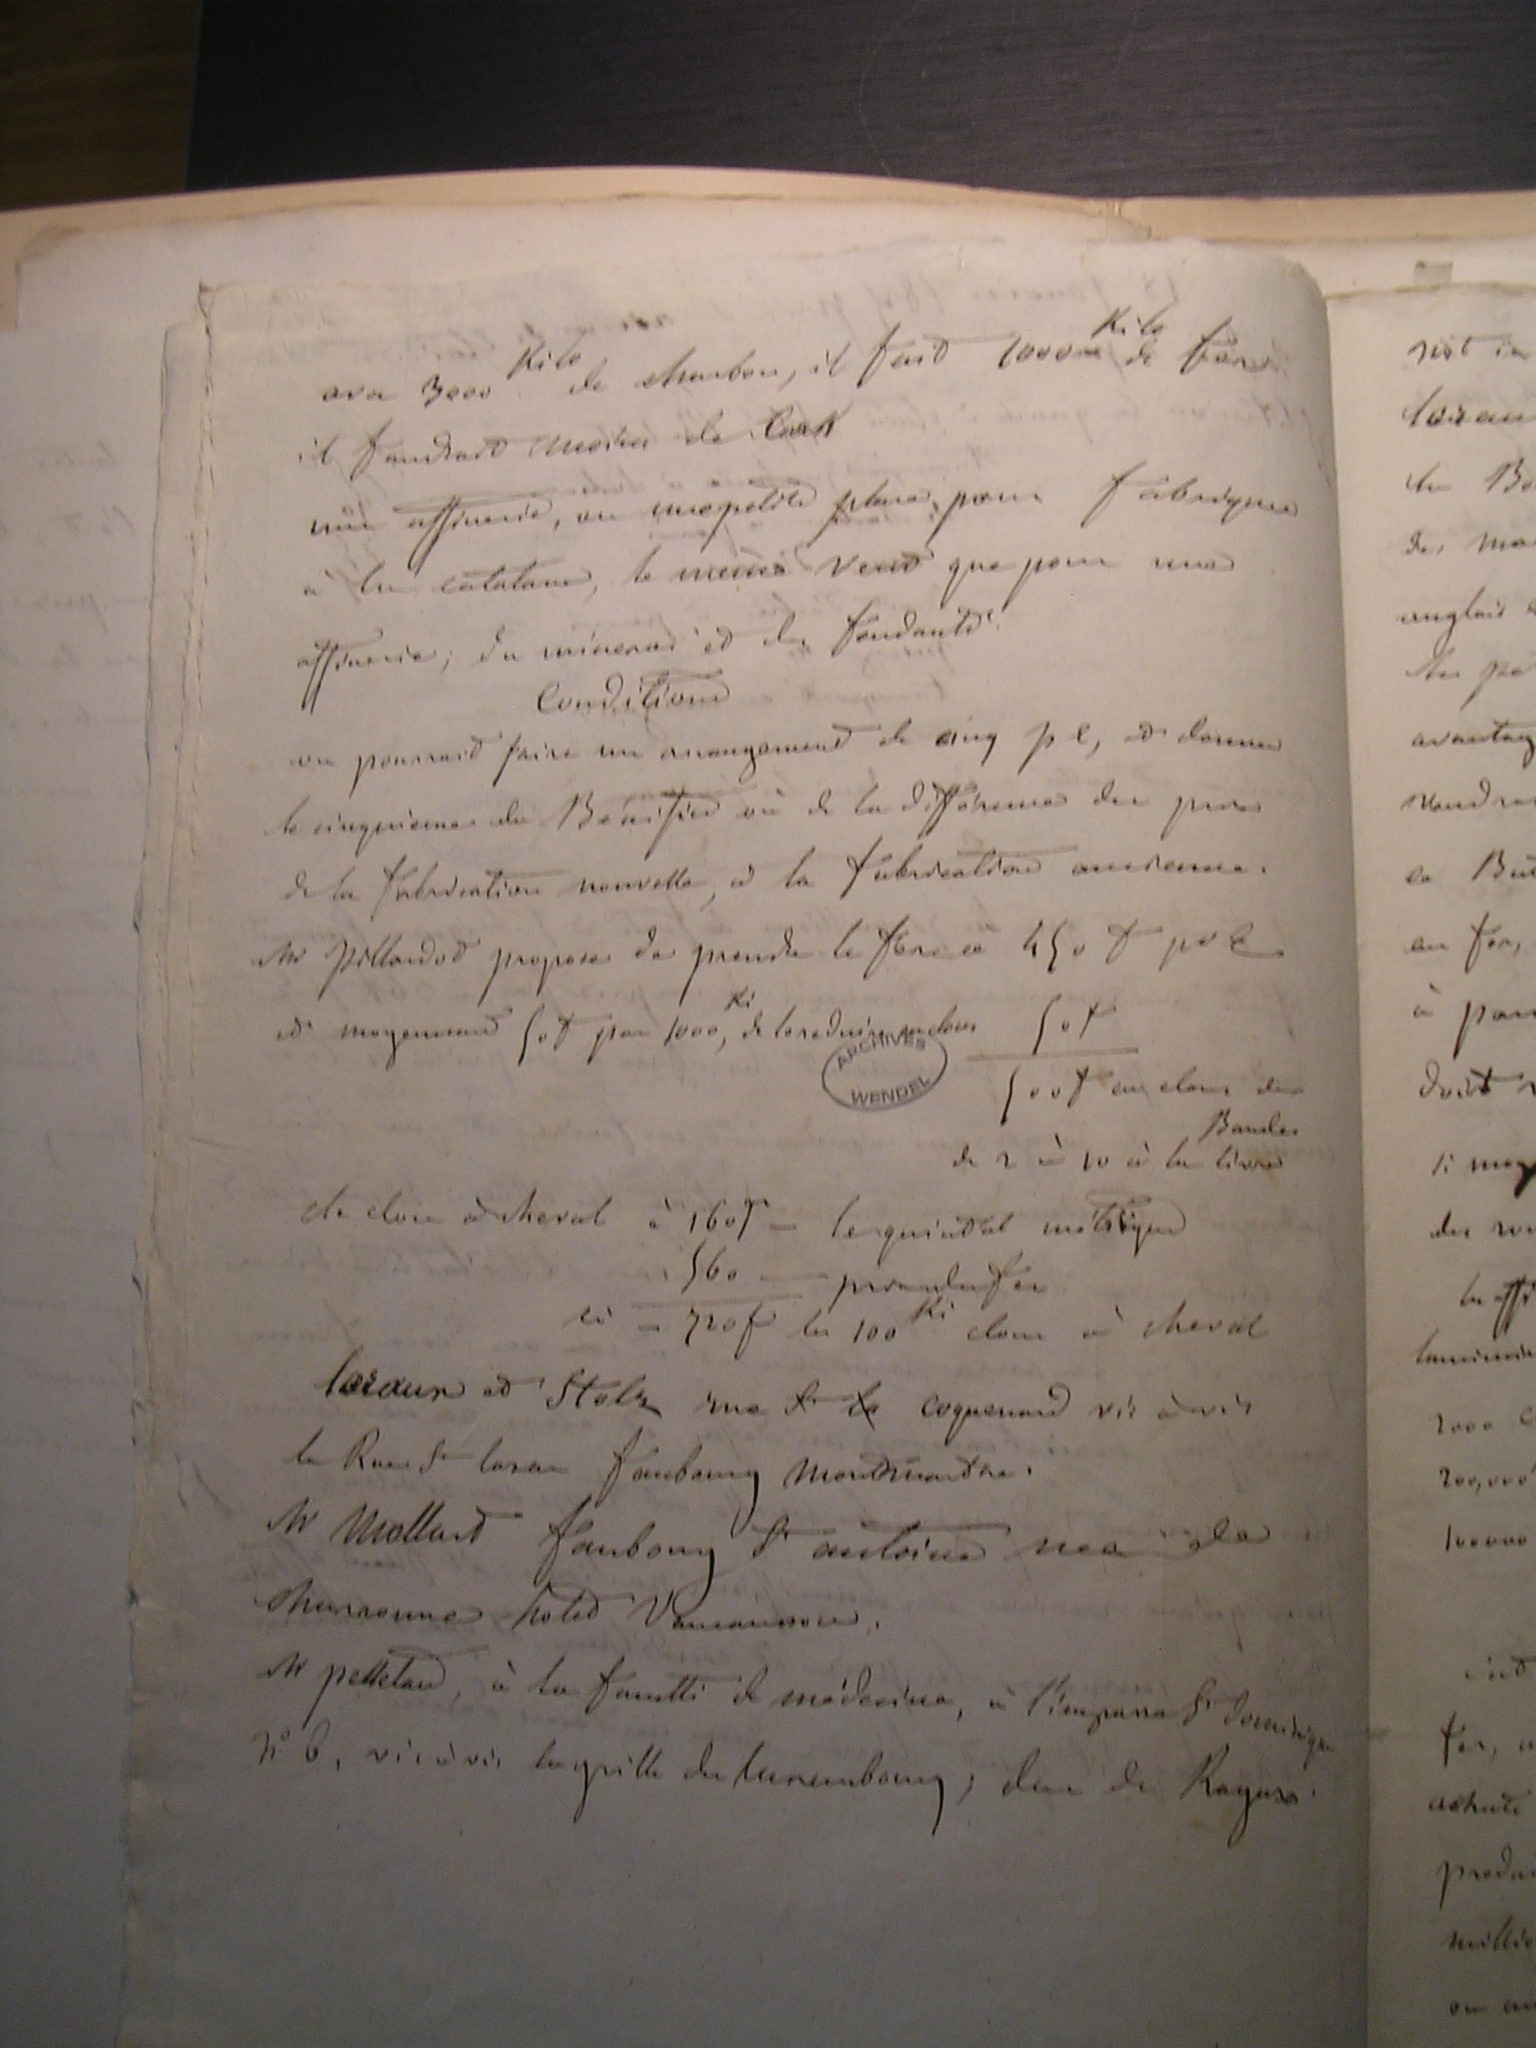 avec 3000 Kilo de charbon, il fait 1000 Kilo de fer
il faudrait moins de Coak
une affinerie, ou une petite place, pour fabriquer
à la catalane, le meme vent que pour une
affinerie; du minerai et des fondants.
Conditions
on pourrait faire un arrangement de cinq p C, et donner
le cinquieme du Benifice où de la différence des prix
de la fabrication nouvelle, à la fabrication ancienne.
Mr pillardot propose de prendre le fer à 450 f
et moyennant 50f par 1000 Ki, de le reduire en clous 50f
ARCHIVES WENDEL
500f en clous de
Bandes
de 2 à 10 à la livre
de clou à cheval à 160f — le quintal metrique
560 — prix du fer
720f les 100 Ki clou à cheval
et Stolz rue coquenard vis à vis
la Rue St lazare faubourg Montmartre.
Mr Mollard faubourg St antoine rue de
charonne hotel Vaucanson.
Mr pelletan, à la faculté de médecine, à l'impasse St dominique
n° 6, vis à vis la grille du luxembourg; duc de Raguse.
not in
les Bo
des ma
anglais
les pe
avantag
vendre
au fer,
à pa
doit
si moy
des
les affi
laminoir
2000
200,000
100000
fer,
acheté
produi
millie
ou au